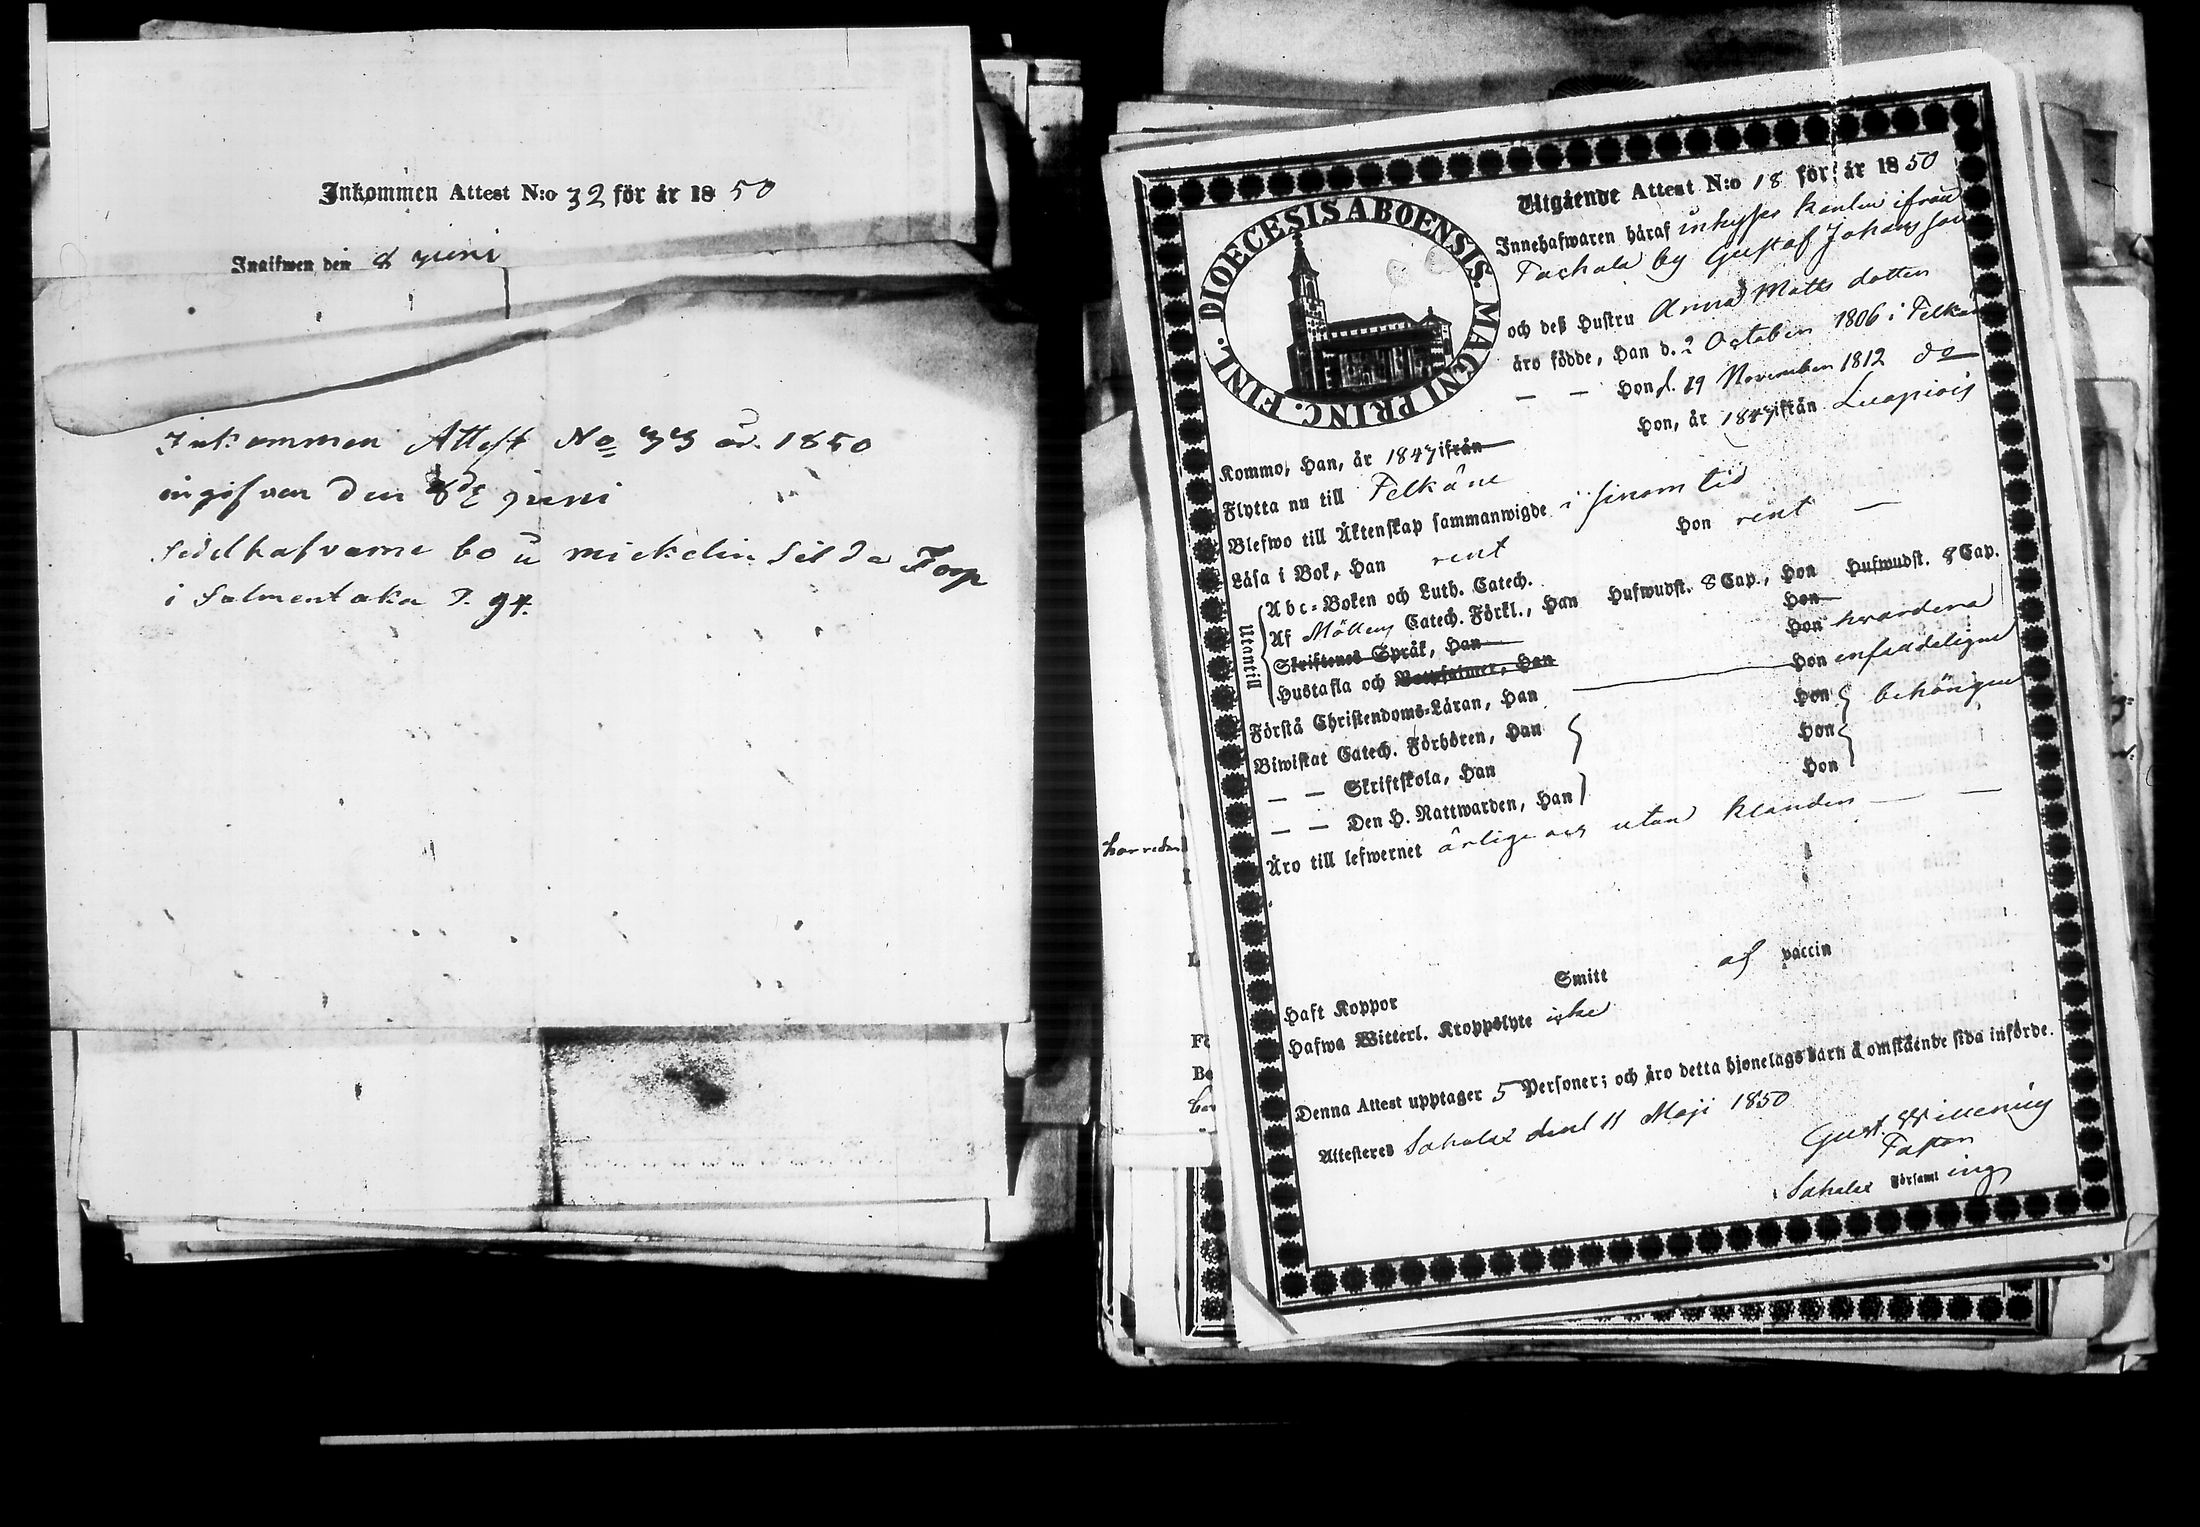 Inkommen Attest N:o 32 för år 18 50
Ingifwen den 8 juni
Inkommen Attest No 33 år 1850
ingifvan den 8de juni
Sedelhafvarne bo u mickelin Torp
i Salmentaka P. 94.
DIOECESIS ABOENSIS. MAGNI PRINC. FINL.
Utgående Attest N:o 18 för år 18 50
Innehafwaren häraf inhyses karlen ifrån
by Gustaf Johansson
och deß Hustru Anna Matts dotter
äro födde, Han d. 2 October 1806 i
— — Hon d. 19 November 1812 do
Kommo, Han, år 1847 ifrån Hon, år 1847 ifrån Luopiois
Flytta nu till Pelkäne
Blefwo till Äktenskap sammanwigde i sinom tid
Läsa i Bok, Han rent Hon rent —
Utantill
Abc-Boken och Luth. Catech.
Af Catech. Förkl., Han Hufwudst. 8 Cap., Hon Hufwudst. 8 Cap.
Skriftenes Språk, Han Hon
Hustafla och Botpsalmer, Han Hon hvardera
Förstå Christendoms-Läran, Han Hon enfaldeligen
Biwistat Catech. Förhören, Han Hon behörigen
— — Skriftskola, Han Hon
— — Den H. Nattwarden, Han Hon
Äro till lefwernet ärlige och utan klander — —
Haft Koppor Smitt af vaccin
Hafwa Witterl. Kroppslyte icke
Denna Attest upptager 5 Personer; och äro detta hjonelags barn å omstående sida införde.
Attesteres Sahalax den 11 Maji 1850
Gust.
Pastor
Sahalax Församl ing